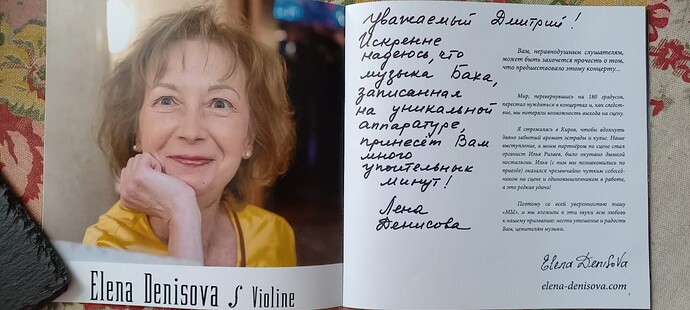 Elena Denisova
Violine
Уважаемый Дмитрий!
Искренне
надеюсь, что
музыка Баха,
записанная
на уникальной
аппаратуре,
принесёт Вам
много
упоительных
минут!
Лена
Денисова
Вам, неравнодушным слушателям,
может быть захочется прочесть о том,
что предшествовало этому концерту...
Мир, перевернувшись на 180 градусов,
перестал нуждаться в концертах и, как следст-
вие, мы потеряли возможность выхода на сцену.
Я стремилась в Киров, чтобы вдохнуть
давно забытый аромат эстрады и кулис. Наше
выступление, а моим партнёром по сцене стал
органист Илья Ризаев, было окутано дымкой
ностальгии. Илья (с ним мы познакомились по
приезду) оказался чрезвычайно чутким собесед-
ником на сцене и единомышленником в работе,
а это редкая удача!
Поэтому со всей уверенностью пишу
«МЫ», и мы вложили в эти звуки всю любовь
к нашему призванию: нести утешение и радость
Вам, ценителям музыки.
Elena Denisova
elena-denisova.com